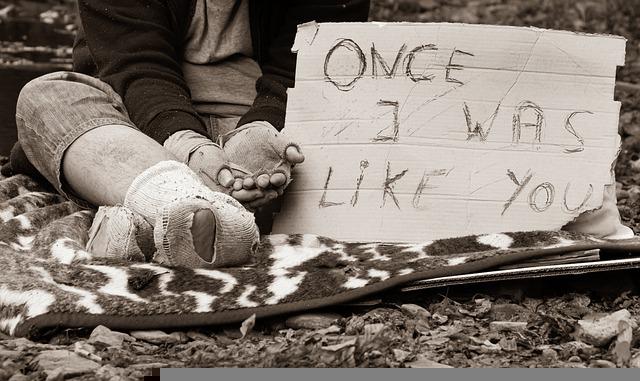 ONCE
I WAS
LIKE YOU